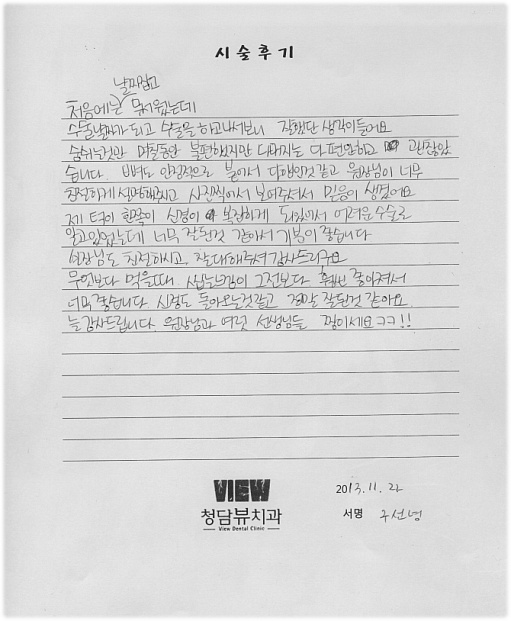 시술후기
날짜잡고
처음에는 무서웠는데
수술날짜가 되고 수술을 하고나서보니 잘했단 생각이들어요
숨쉬는것만 며칠동안 불편했지만 나머지는 다 편안하고 괜찮았
습니다. 뼈도 안정적으로 붙어서 다행인것같고 원장님이 너무
친절하게 설명해주시고 사진찍어서 보여주셔서 믿음이 생겼어요
제 턱이 한쪽이 신경이 복잡하게 되있어서 어려운 수술로
알고있었는데 너무 잘된것 같아서 기분이 좋습니다
친절하시고, 잘대해주셔 감사드리구요
무엇보다 먹을때 씹는느낌이 그전보다 훨씬 좋아져서
너무 좋습니다 신경도 돌아오는것같고 정말 잘된것 같아요
늘 감사드립니다. 원장님과 여럿 선생님들 짱이세요ㅋㅋ!!
VIEW
청담뷰치과
View Dental Clinic
2013. 11. 22
서명